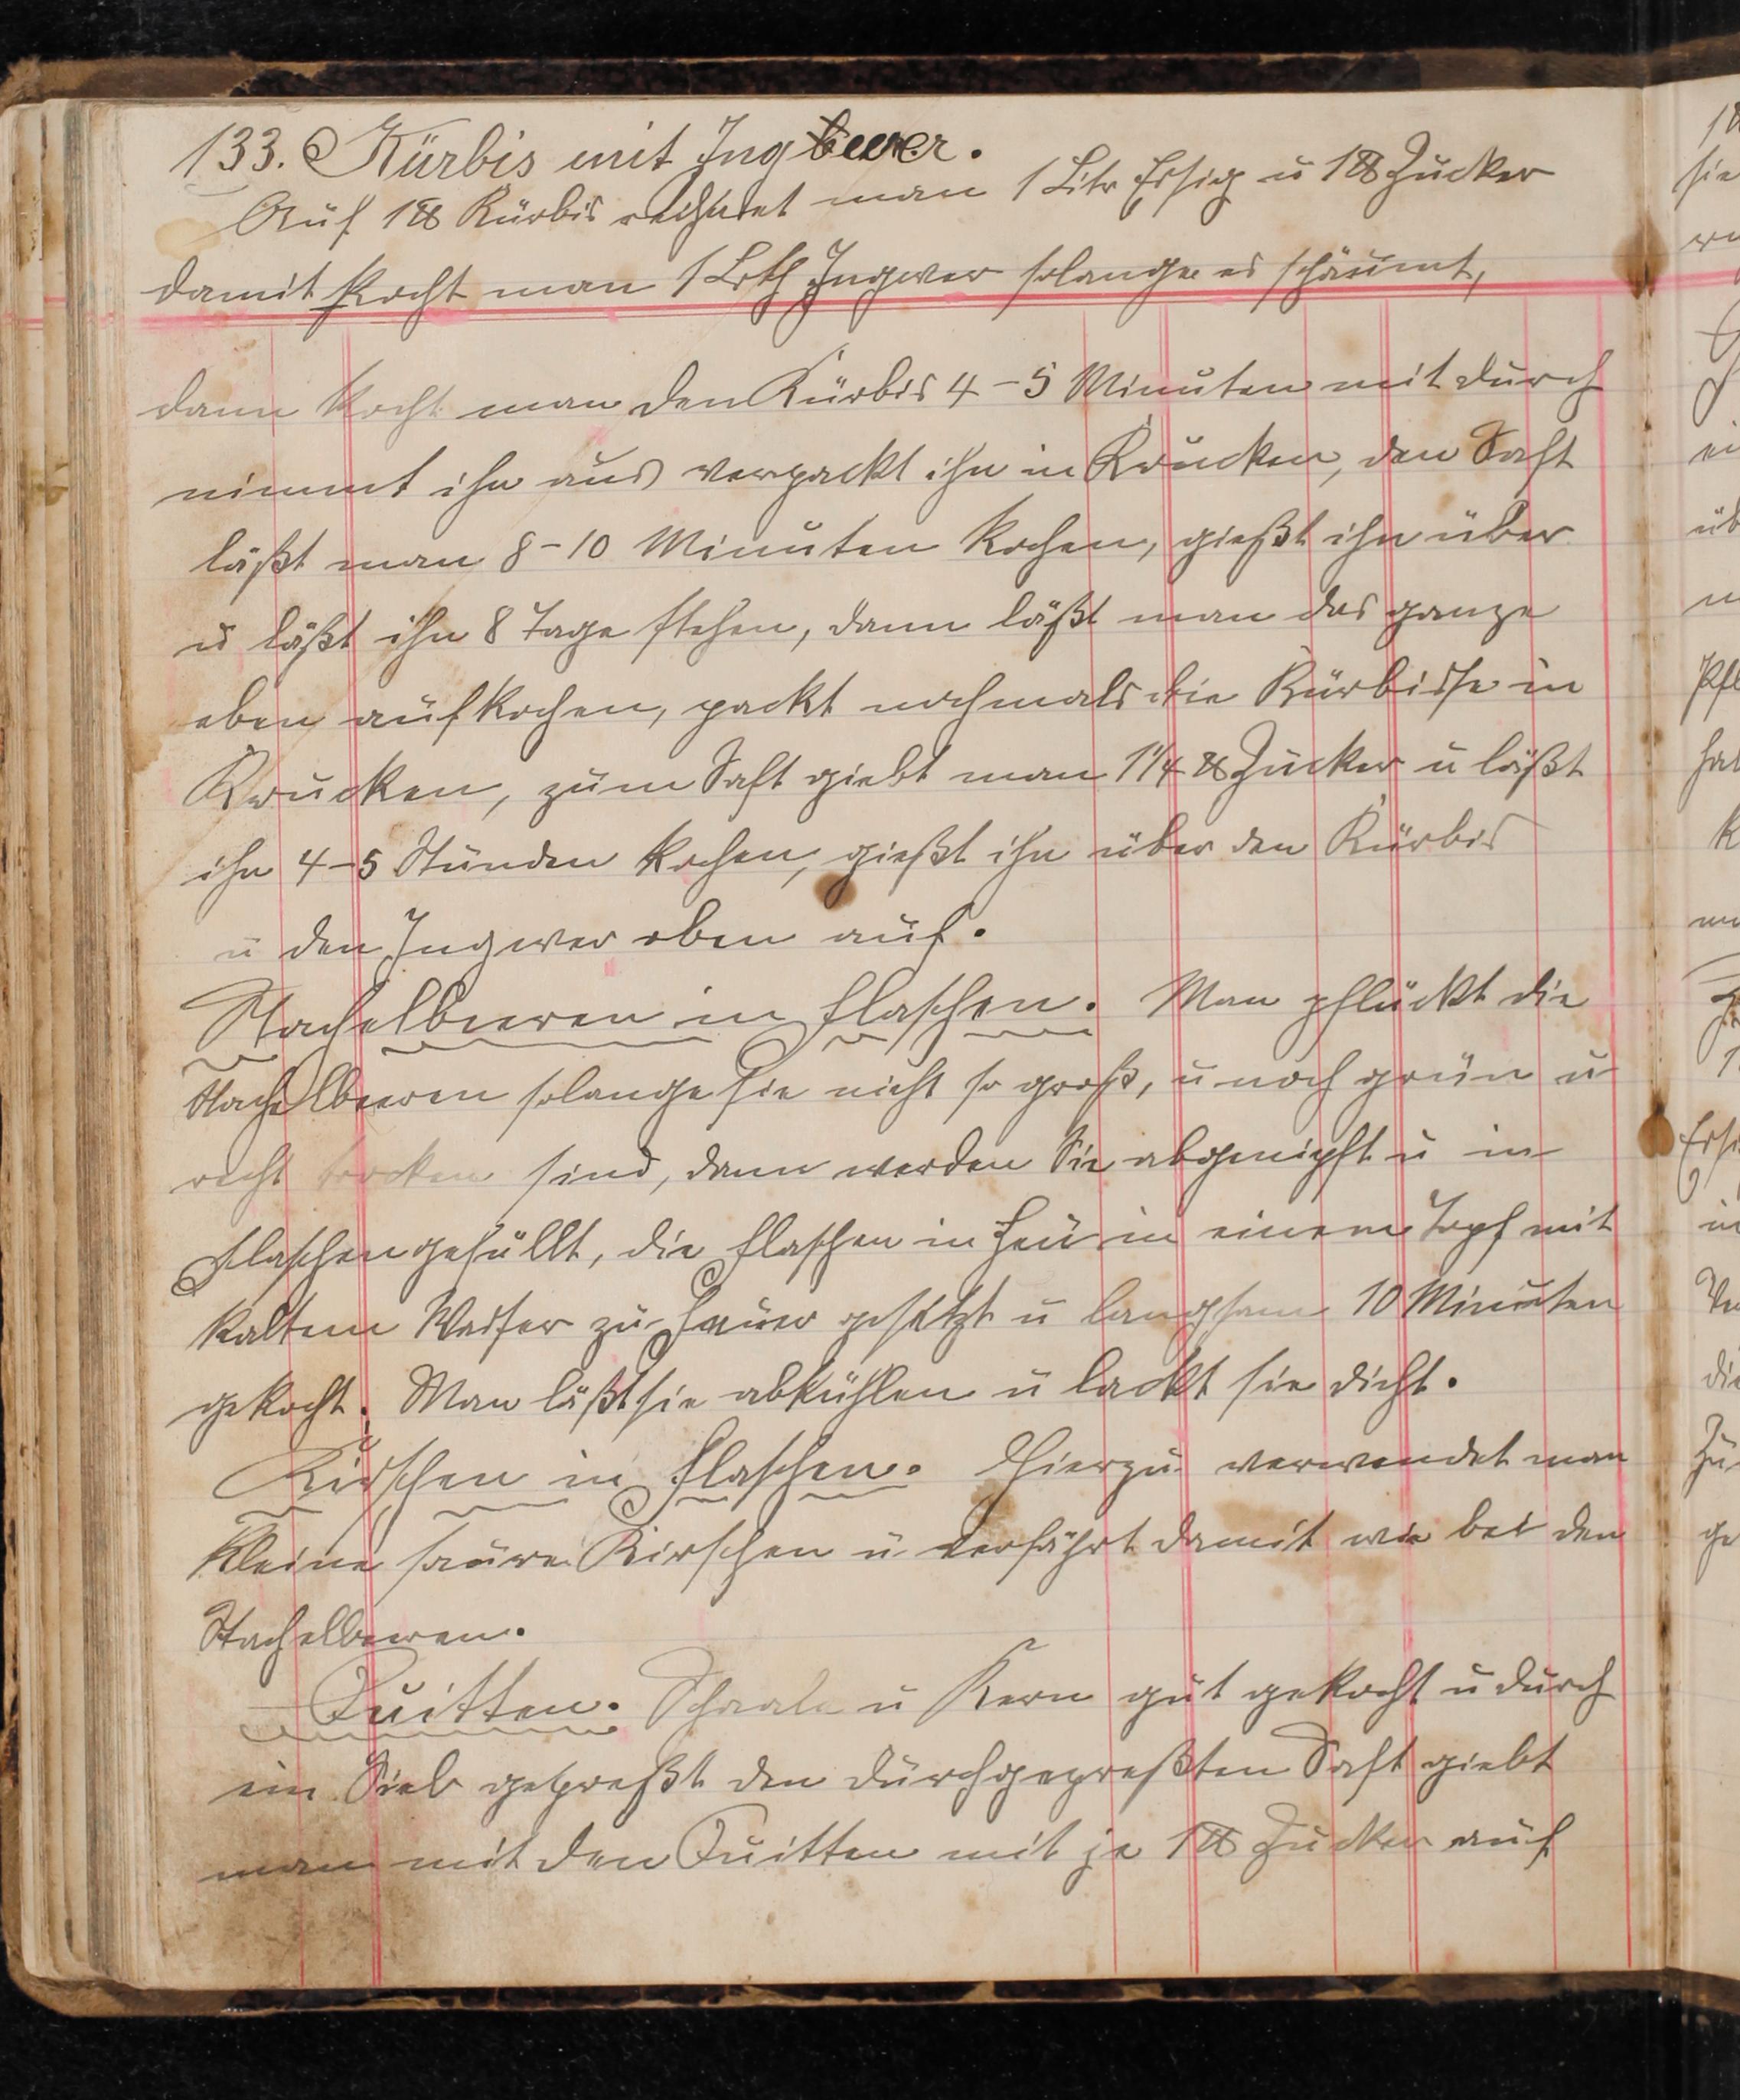 133. Kürbis mit Ingwer.
Auf 1 ℔ Kürbis rechnet man 1 Litr Essig u 1 ℔ Zucker
damit kocht man 1 Loth Ingwer solange es schäumt,
dann kocht man den Kürbis 4-5 Minuten mit durch
nimmt ihn aus verpackt ihn in Krucken, den Saft
läßt man 8-10 Minuten kochen, gießt ihn über
u läßt ihn 8 Tage stehen, dann läßt man das ganze
eben aufkochen, packt nochmals die Kürbisse in
Krucken, zum Saft giebt man 1 1/4 ℔ Zucker u läßt
ihn 4-5 Stunden kochen, gießt ihn über den Kürbis
u den Ingwer oben auf.
Stachelbeeren in Flaschen. Man pflückt die
Stachelbeeren solange sie nicht so groß, u noch grün u
recht trocken sind, dann werden Sie abgenipft u in
Flaschen gefüllt, die Flaschen in Heu in einem Topf mit
kaltem Wasser zu Feuer gesetzt u langsam 10 Minuten
gekocht. Man läßt sie abkühlen u lackt sie dicht.
Kirschen in Flaschen. Hierzu verwendet man
kleine saure Kirschen u verfährt damit wie bei den
Stachelbeeren.
Quitten. Schaale u Kern gut gekocht u durch
ein Sieb gepreßt den durchgepreßten Saft giebt
man mit den Quitten mit je 1 ℔ Zucker auf